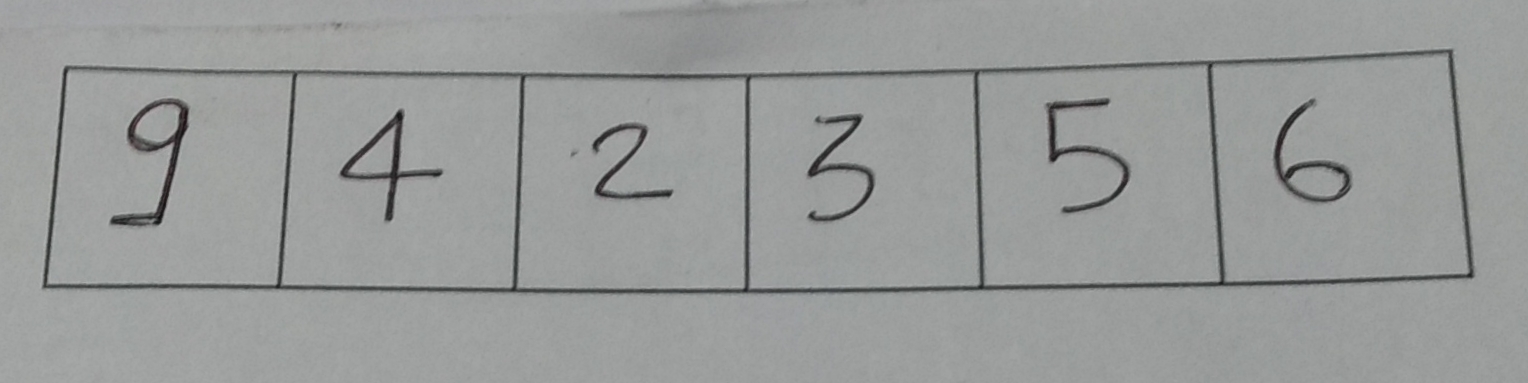 9 4 2 3 5 6